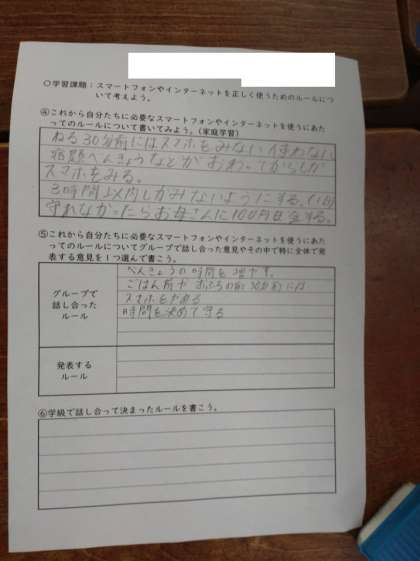 ○学習課題：スマートフォンやインターネットを正しく使うためのルールにつ
いて考えよう。
④これから自分たちに必要なスマートフォンやインターネットを使うにあた
ってのルールについて書いてみよう。（家庭学習）
ねる30分前にはスマホをみない、使わない
宿題べんきょうなどがおわってからしか
スマホをみる。
3時間以内しかみないようにする。(1日)
守れなかったらお母さんに100円日金する。
⑤これから自分たちに必要なスマートフォンやインターネットを使うにあた
ってのルールについてグループで話し合った意見やその中で特に全体で発
表する意見を１つ選んで書こう。
グループで
話し合った
ルール
べんきょうの時間を増やす。
ごはん前や おふろの前 30分前には
スマホをやめる
時間を決めて守る
発表する
ルール
⑥学級で話し合って決まったルールを書こう。